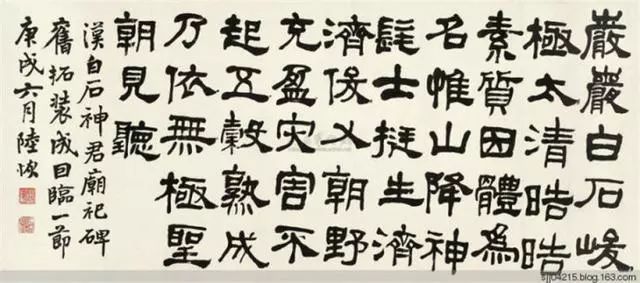 巖巖白石峻
極太清晧晧
素質因體為
名惟山降神
髦士挺生濟
濟俊乂朝野
充盈灾害不
起五穀熟成
乃依無極聖
朝見聽
漢白石神君廟祀碑
舊拓裝成因臨一節
庚戌六月陸恢
sjj04215.blog.163.com